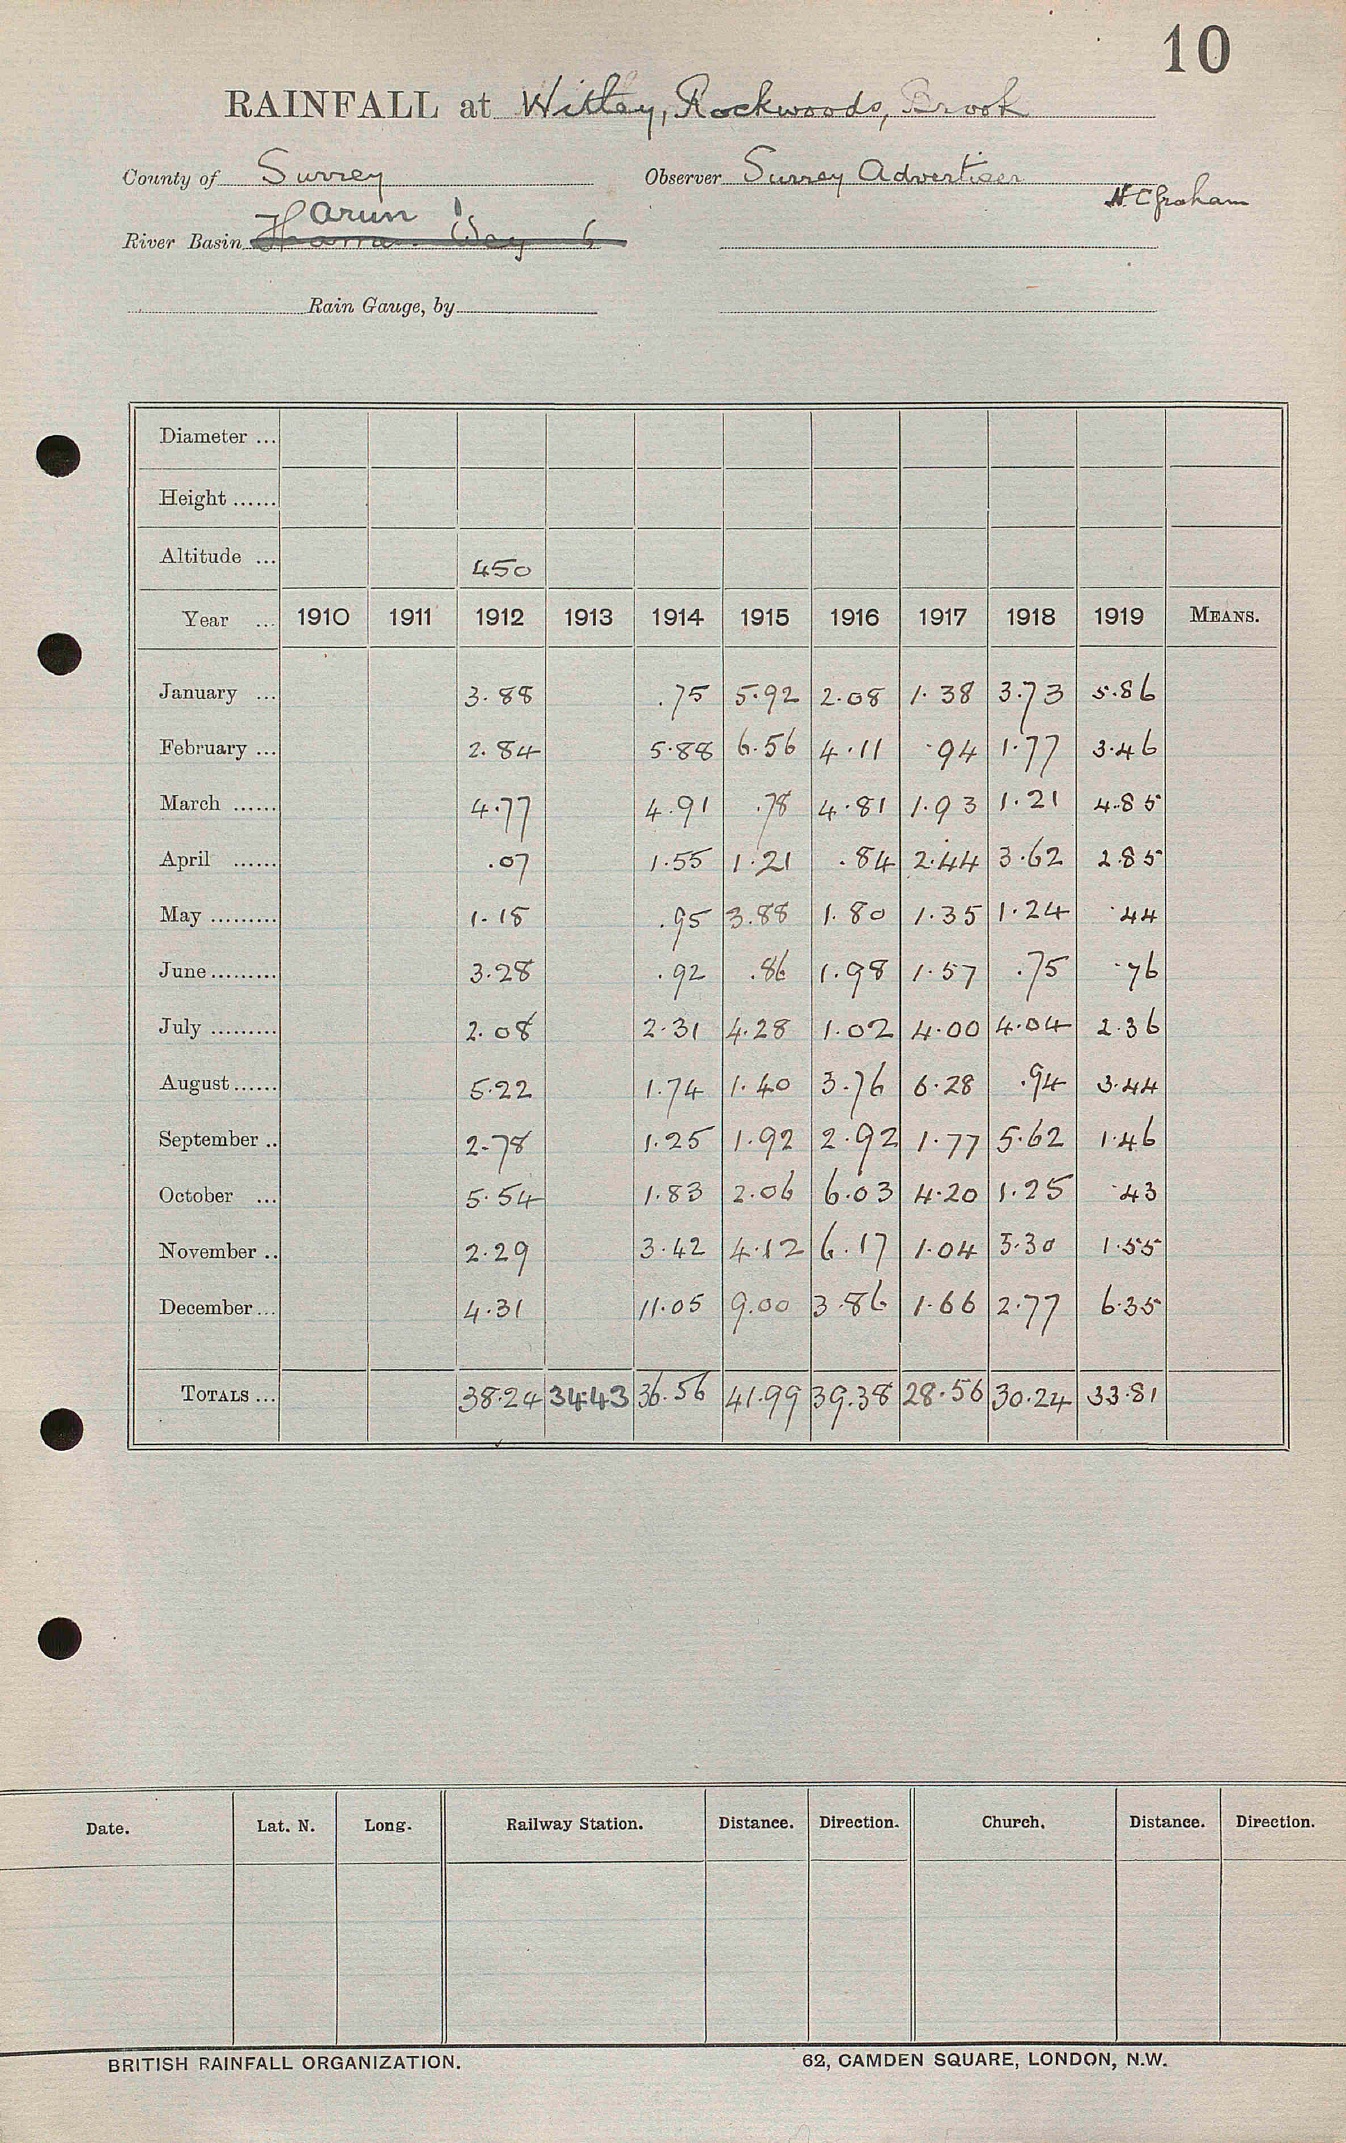 10
RAINFALL at Witley, Rockwoods, Brook
County of Surrey Observer Surrey Advertiser
H C Graham
Arun 1
River Basin Thames Wey 6
Rain Gauge, by
Diameter ...
Height ......
Altitude ... 450
Year ... 1910 1911 1912 1913 1914 1915 1916 1917 1918 1919 MEANS.
January ... 3.88 .75 5.92 2.08 1.38 3.73 5.86
February ... 2.84 5.88 6.56 4.11 .94 1.77 3.46
March ...... 4.77 4.91 .78 4.81 1.93 1.21 4.85
April ...... .07 1.55 1.21 .84 2.44 3.62 2.85
May ......... 1.18 .95 3.88 1.80 1.35 1.24 .44
June ......... 3.28 .92 .86 1.98 1.57 .75 .76
July ......... 2.08 2.31 4.28 1.02 4.00 4.04 2.36
August ...... 5.22 1.74 1.40 3.76 6.28 .94 3.44
September .. 2.78 1.25 1.92 2.92 1.77 5.62 1.46
October ... 5.54 1.83 2.06 6.03 4.20 1.25 .43
November .. 2.29 3.42 4.12 6.17 1.04 3.30 1.55
December ... 4.31 11.05 9.00 3.86 1.66 2.77 6.35
TOTALS ... 38.24 34.43 36.56 41.99 39.38 28.56 30.24 33.81
Date. Lat. N. Long. Railway Station. Distance. Direction. Church. Distance. Direction.
BRITISH RAINFALL ORGANIZATION. 62, CAMDEN SQUARE, LONDON, N.W.